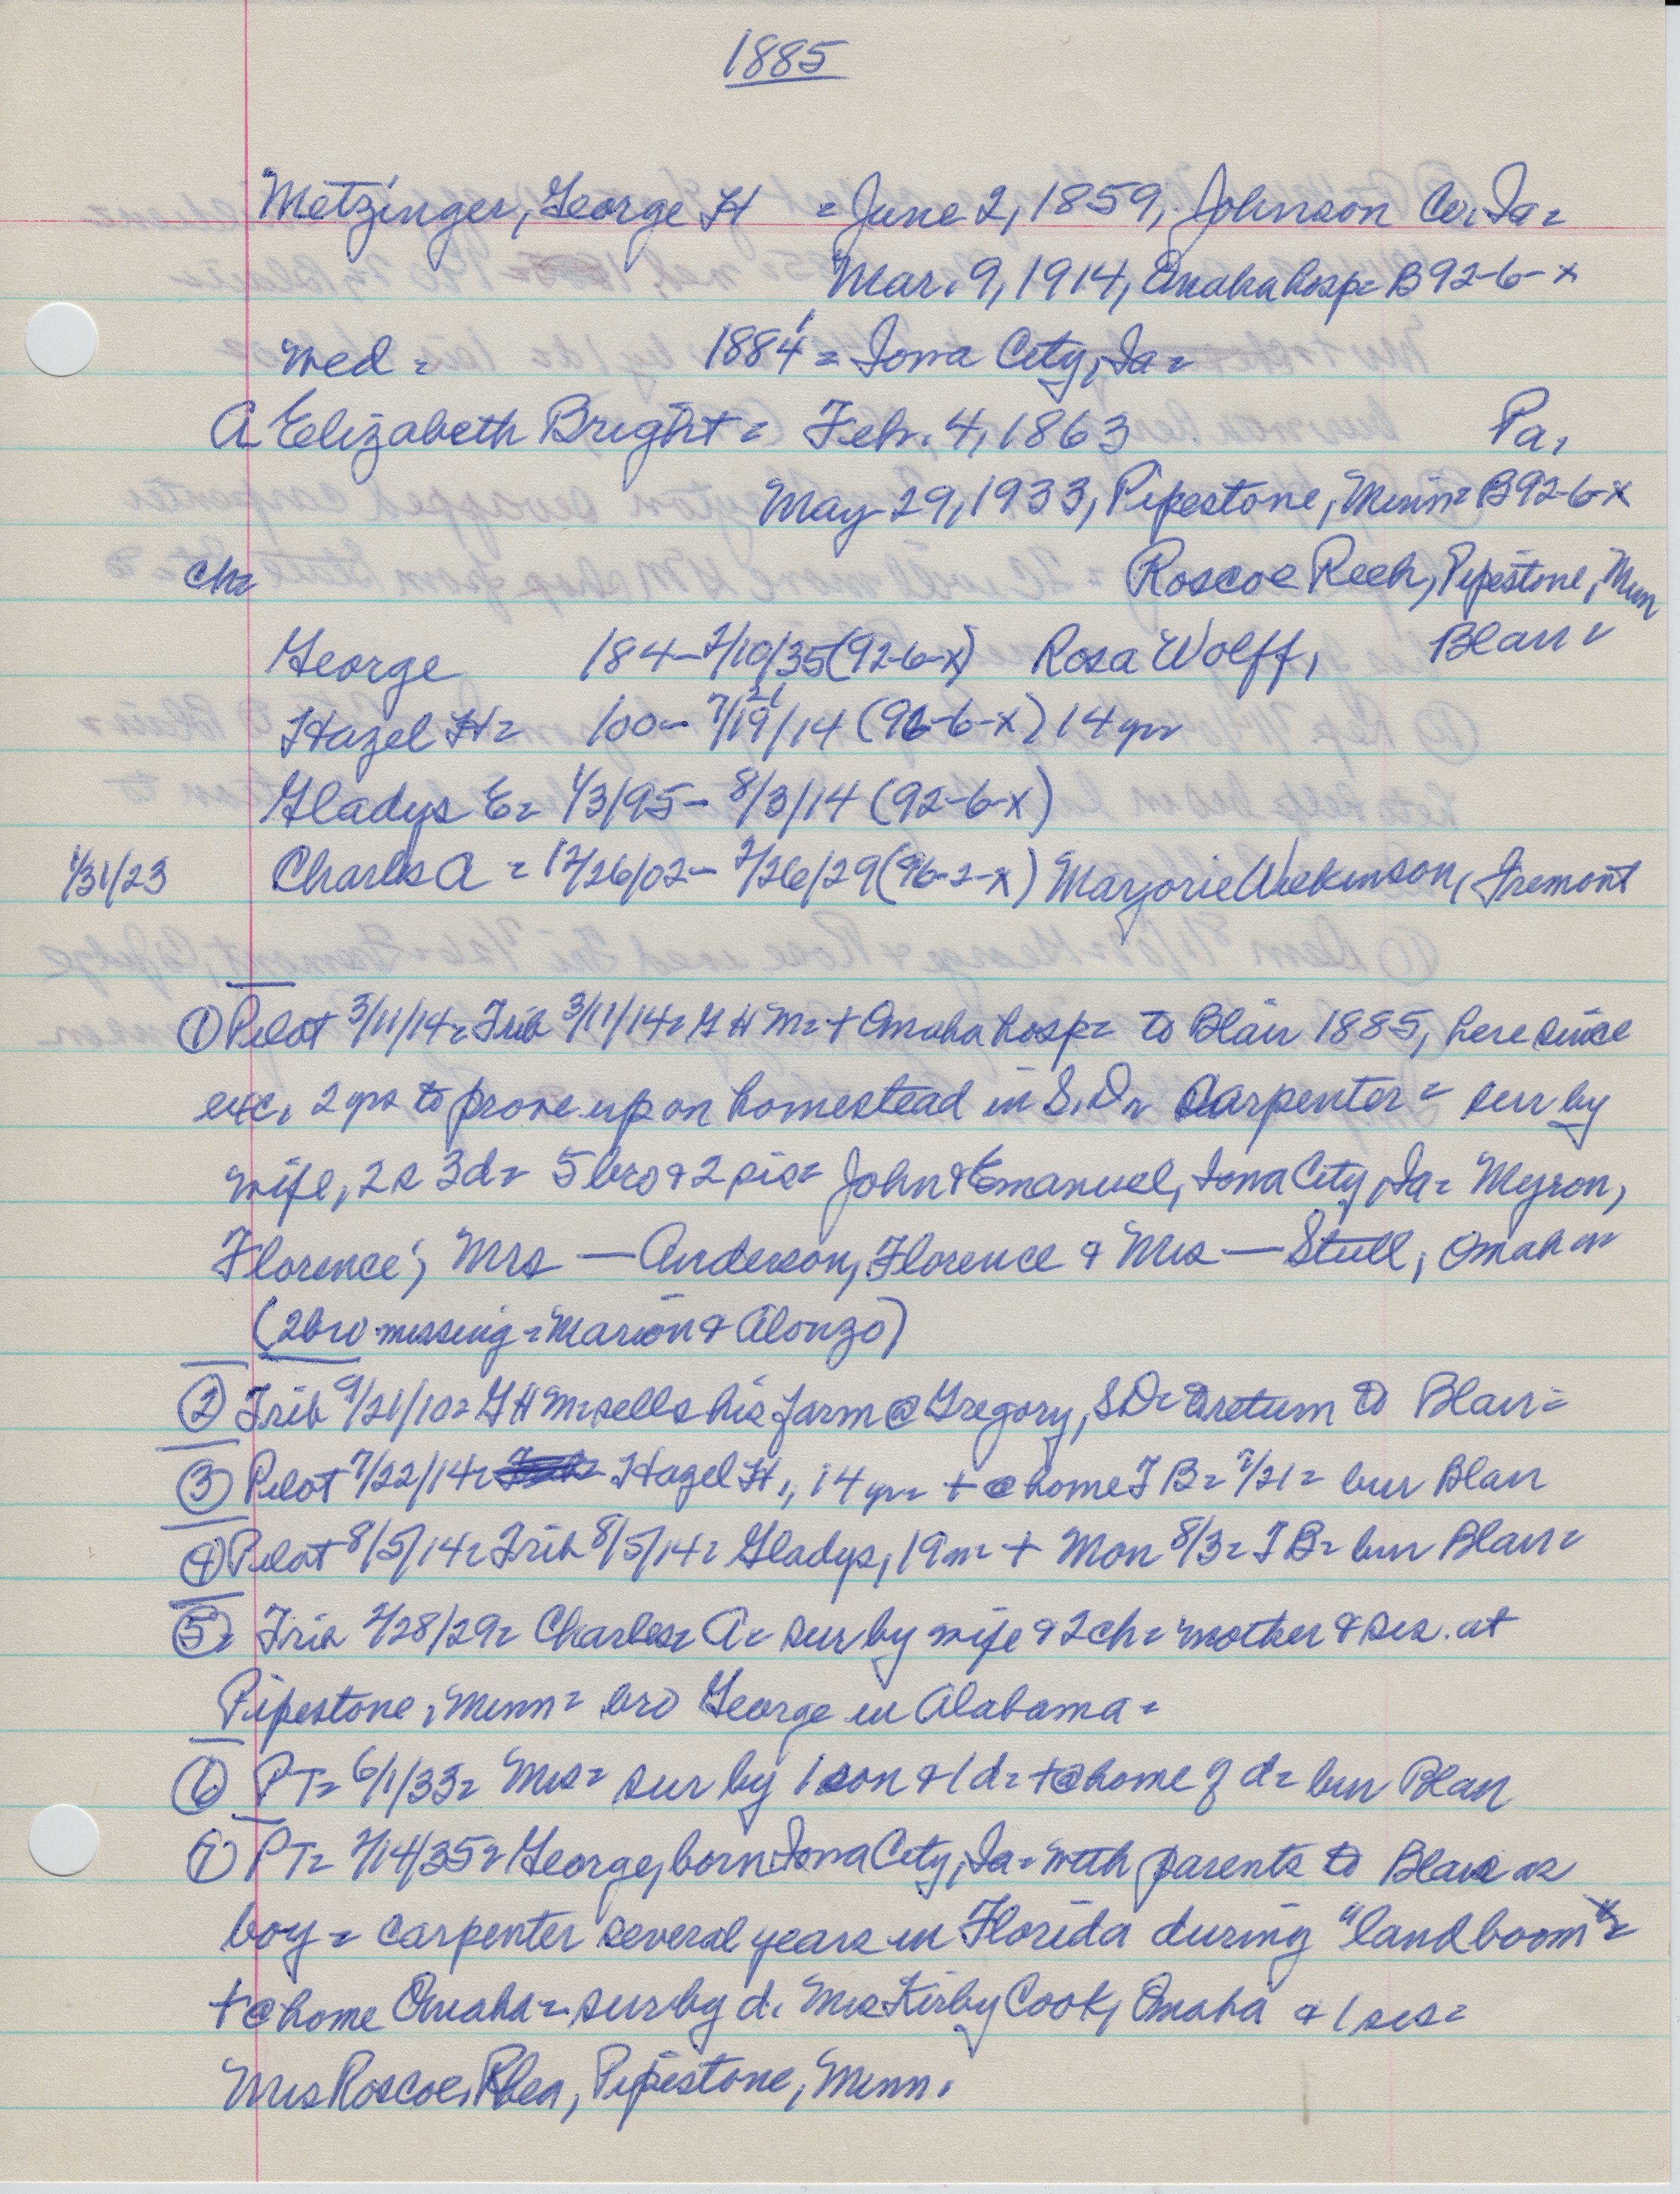 1885
Metzinger, George H = June 2, 1859, Johnson Co. Ia =
Mar. 9, 1914, Omaha hosp = B92-6-x
wed = 1884 = Iowa City, Ia =
A Elizabeth Bright = Feb. 4, 1863 Pa,
May 29, 1933, Pipestone, Minn = B92-6-x
ch = Roscoe Reeh, Pipestone, Minn
George 184- 2/10/35 (92-6-x) Rosa Wolff, Blair =
Hazel H = 100- 7/19/14 (92-6-x) 14 yr
21
Gladys E = 1/3/95 - 8/3/14 (92-6-x)
1/31/23 Charles A = 12/26/02 - 2/26/29 (96-2-x) Marjorie Wilkinson, Fremont
① Pilot 3/11/14 = Trib 3/11/14 = G H M = + Omaha hosp = to Blair 1885, here since
exc. 2 yrs to prove up on homestead in S.D = Carpenter = sur by
wife, 2 s 3d = 5 bro & 2 sis = John & Emanuel, Iowa City, Ia = Myron,
Florence; Mrs — Anderson, Florence & Mrs — Stull, Omaha =
(2 bro missing = Marion & Alonzo)
② Trib 9/21/10 = G H M = sells his farm @ Gregory, SD = return to Blair =
③ Pilot 7/22/14 = Hazel H., 14 yr = + @ home T B = 7/21 = bur Blair
④ Pilot 8/5/14 = Trib 8/5/14 = Gladys, 19 = + Mon 8/3 = T B = bur Blair =
⑤ = Trib 2/28/29 = Charles = A = sur by wife & 2 ch = mother & sis. at
Pipestone, Minn = bro George in Alabama =
⑥ PT = 6/1/33 = Mrs = sur by 1 son & 1 d = + @ home of d = bur Blair
⑦ PT = 2/14/35 = George, born Iowa City, Ia = with parents to Blair as
boy = carpenter several years in Florida during "land boom" =
+ @ home Omaha = sur by d. Mrs Kirby Cook, Omaha & 1 sis =
Mrs Roscoe Rhea, Pipestone, Minn.